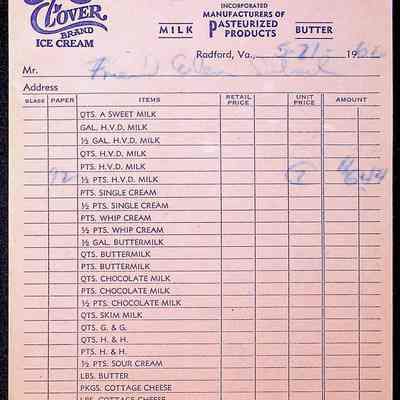 CLOVER
BRAND
ICE CREAM
INCORPORATED
MANUFACTURERS OF
MILK PASTEURIZED PRODUCTS BUTTER
Radford, Va., 5-21- 19
Mr.
Address
GLASS PAPER ITEMS RETAIL PRICE UNIT PRICE AMOUNT
QTS. A SWEET MILK
GAL. H.V.D. MILK
½ GAL. H.V.D. MILK
QTS. H.V.D. MILK
PTS. H.V.D. MILK
92 ½ PTS. H.V.D. MILK 7 6.44
PTS. SINGLE CREAM
½ PTS. SINGLE CREAM
PTS. WHIP CREAM
½ PTS. WHIP CREAM
½ GAL. BUTTERMILK
QTS. BUTTERMILK
PTS. BUTTERMILK
QTS. CHOCOLATE MILK
PTS. CHOCOLATE MILK
½ PTS. CHOCOLATE MILK
QTS. SKIM MILK
QTS. G. & G.
QTS. H. & H.
PTS. H. & H.
½ PTS. SOUR CREAM
LBS. BUTTER
PKGS. COTTAGE CHEESE
LBS. COTTAGE CHEESE